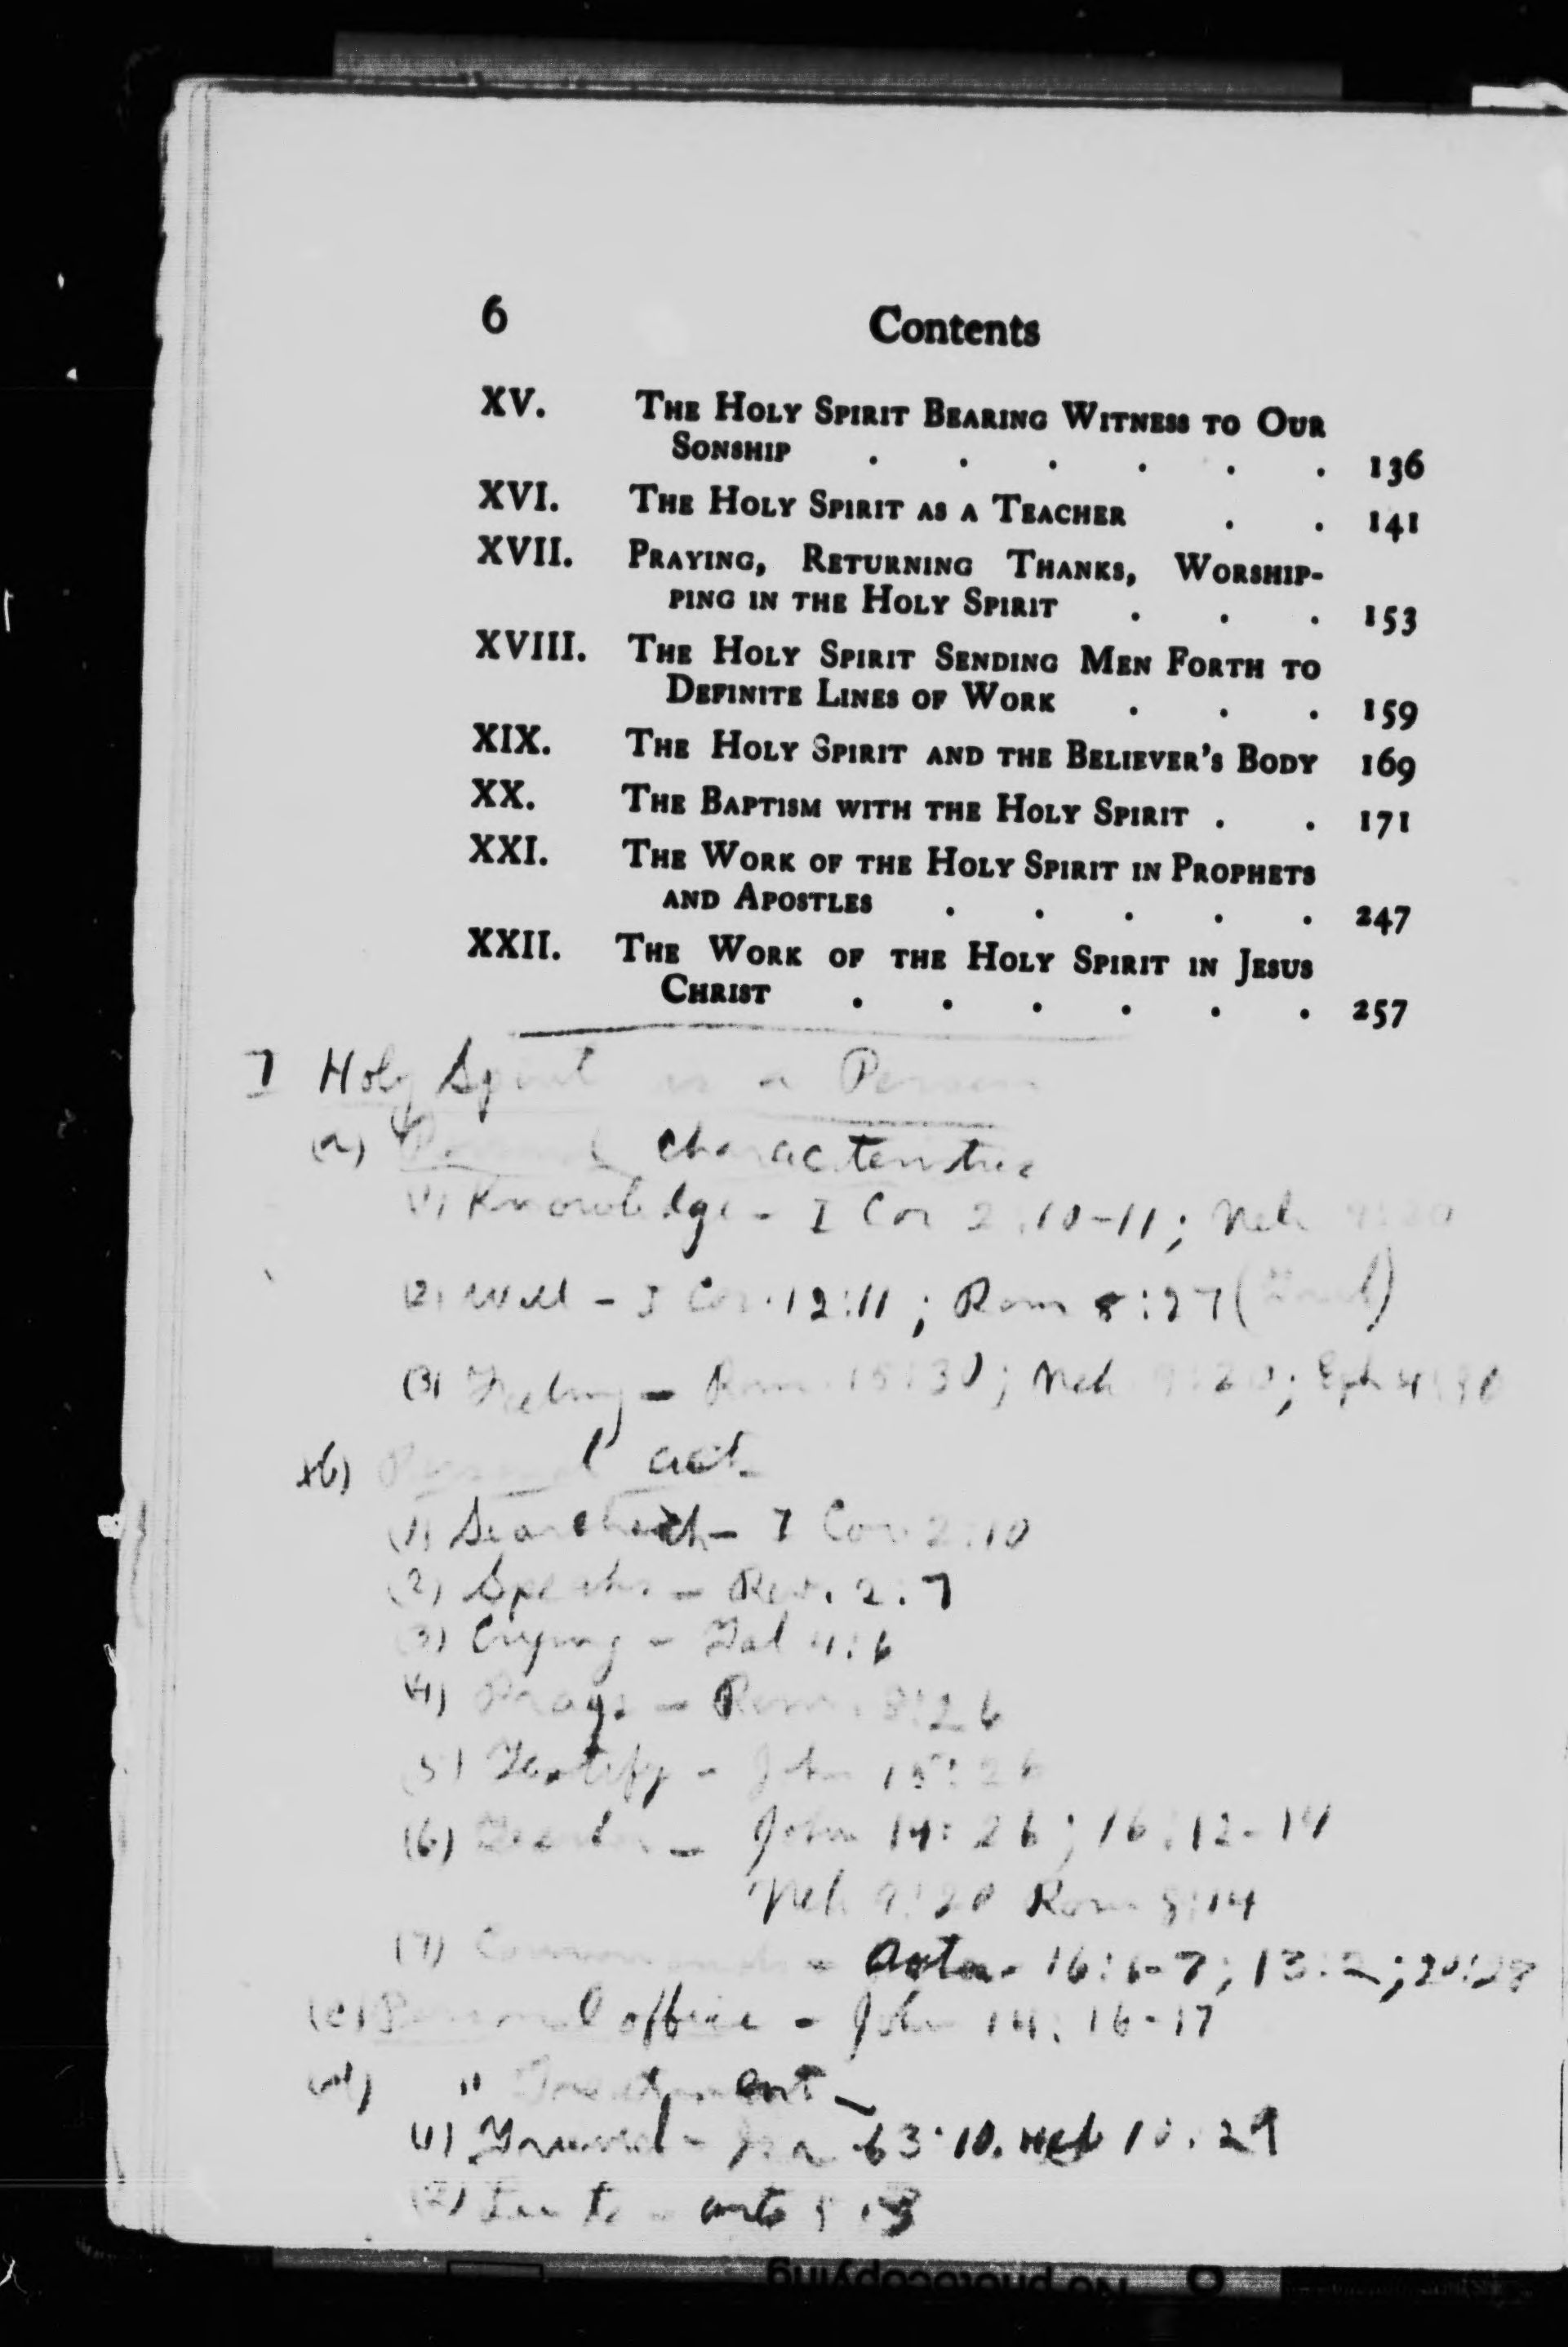 6 Contents
XV. THE HOLY SPIRIT BEARING WITNESS TO OUR
SONSHIP . . . . . . 136
XVI. THE HOLY SPIRIT AS A TEACHER . . 141
XVII. PRAYING, RETURNING THANKS, WORSHIP-
PING IN THE HOLY SPIRIT . . . 153
XVIII. THE HOLY SPIRIT SENDING MEN FORTH TO
DEFINITE LINES OF WORK . . . 159
XIX. THE HOLY SPIRIT AND THE BELIEVER'S BODY 169
XX. THE BAPTISM WITH THE HOLY SPIRIT . . 171
XXI. THE WORK OF THE HOLY SPIRIT IN PROPHETS
AND APOSTLES . . . . . 247
XXII. THE WORK OF THE HOLY SPIRIT IN JESUS
CHRIST . . . . . . 257
I Holy Spirit is a Person
(a) Personal characteristics
(1) Knowledge - I Cor 2:10-11; Neh 9:20
(2) Will - I Cor. 12:11; Rom 8:27
(3) Feeling - Rom 15:30; Neh 9:20; Eph 4:30
(b) Personal act
(1) Searcheth - I Cor. 2:10
(2) Speaks - Rev. 2:7
(3) Crying - Gal 4:6
(4) Prays - Rom. 8:26
(5) Testify - John 15:26
(6) Teaches - John 14:26; 16:12-14
Neh 9:20 Rom 8:14
(7) Commands - Acts 16:6-7; 13:2; 20:28
(c) Personal office - John 14:16-17
(d) " Treatment -
(1) Grieved - Isa 63:10. Heb 10:29
(2) - Acts 5:3
No photocopying